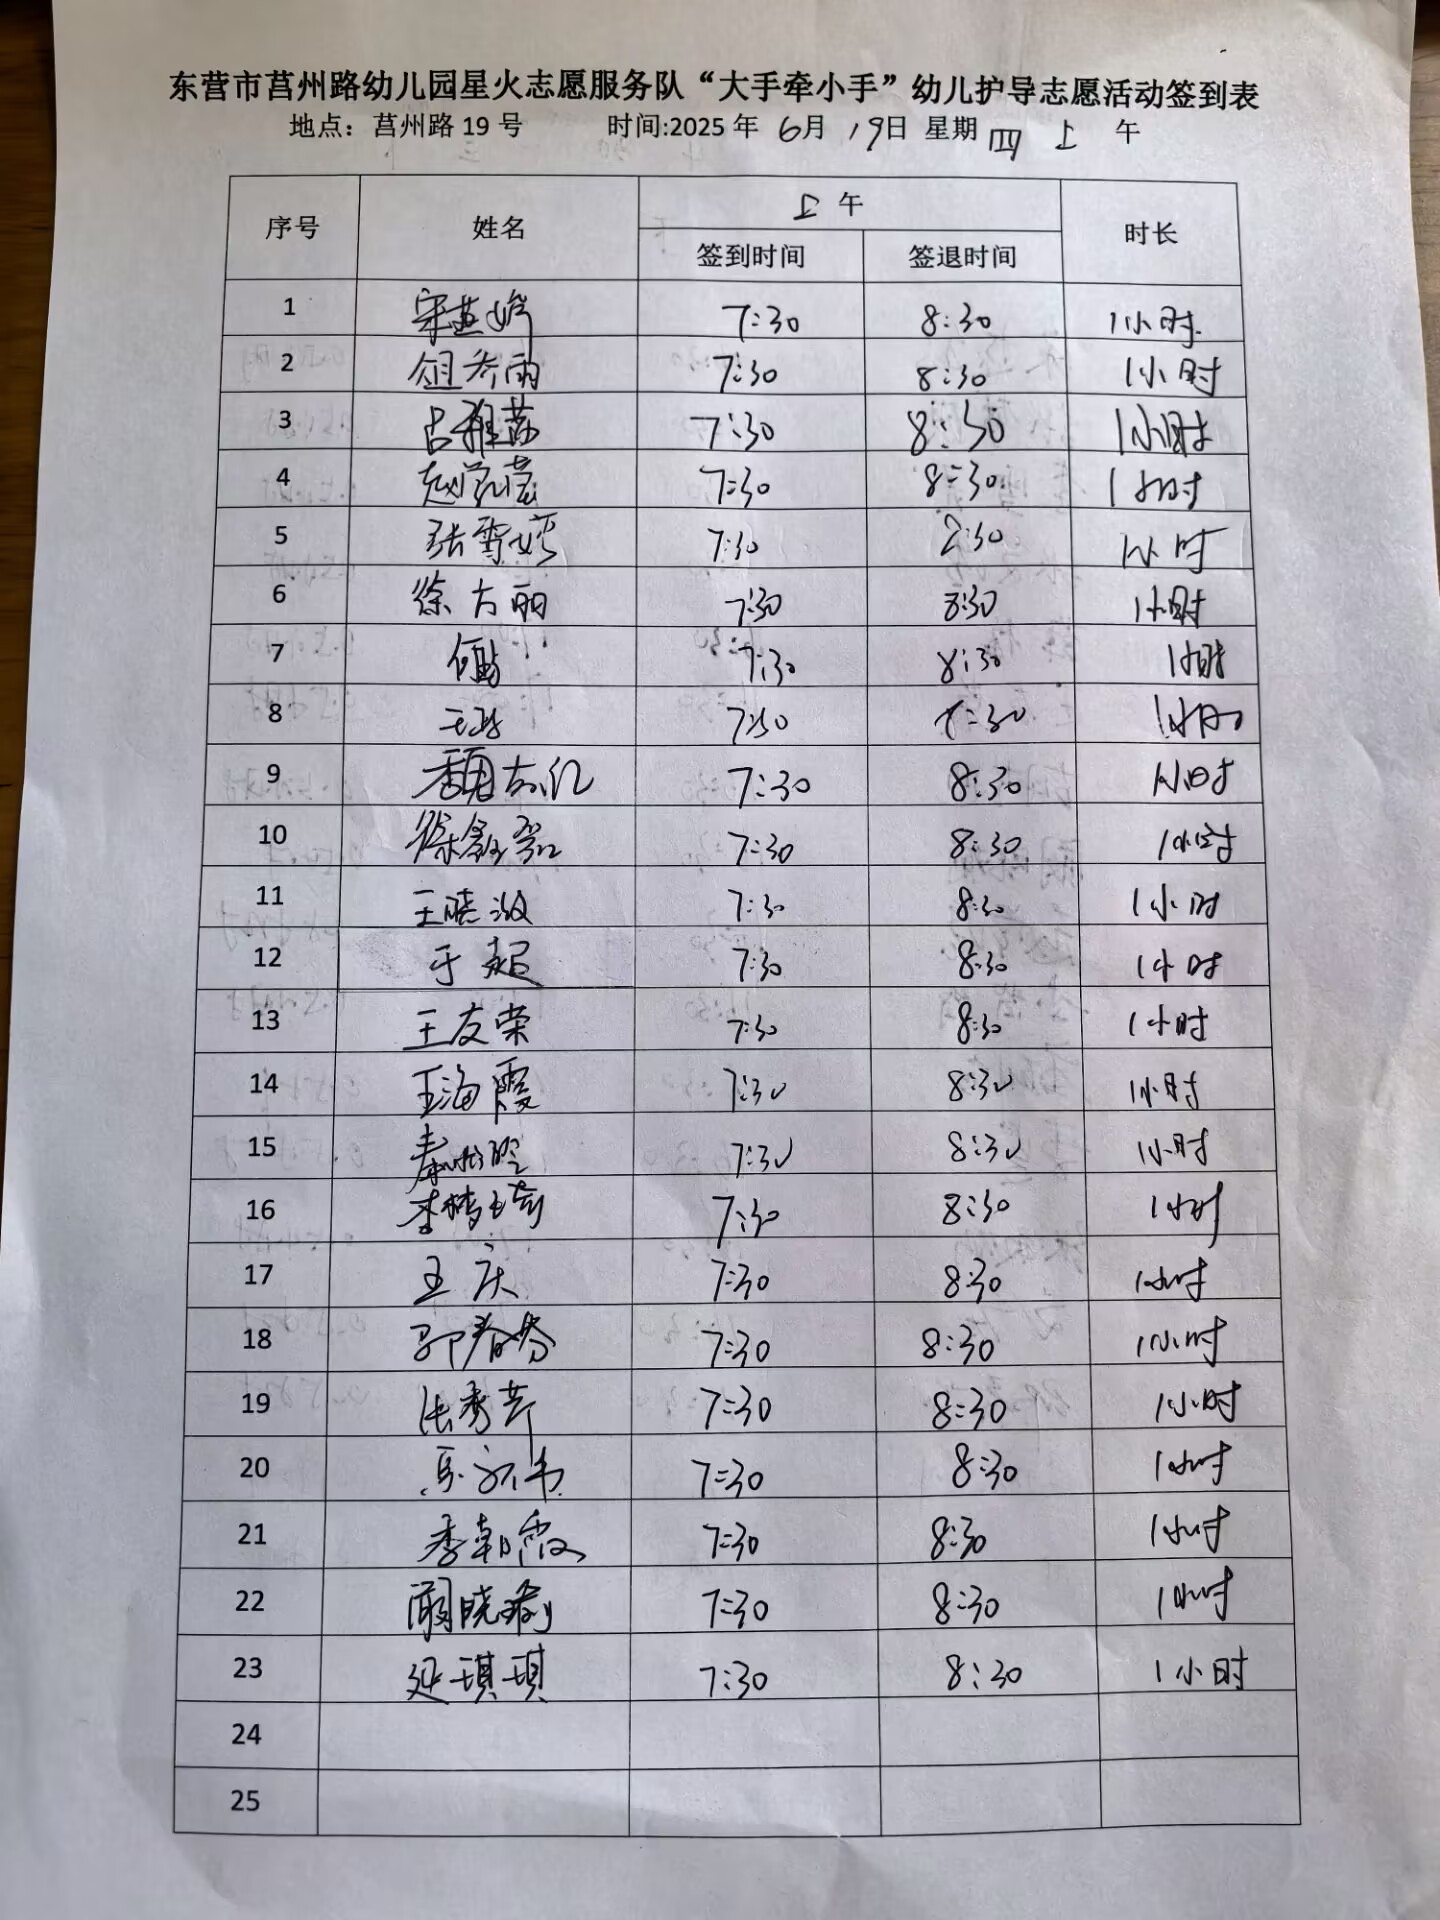 东营市莒州路幼儿园星火志愿服务队“大手牵小手”幼儿护导志愿活动签到表
地点：莒州路 19 号 时间:2025 年 6月 19日 星期 四 上 午
序号 姓名 上 午 时长
签到时间 签退时间
1 7:30 8:30 1小时
2 7:30 8:30 1小时
3 7:30 8:30 1小时
4 7:30 8:30 1小时
5 张雪婷 7:30 8:30 1小时
6 徐大丽 7:30 8:30 1小时
7 7:30 8:30 1小时
8 7:30 8:30 1小时
9 7:30 8:30 1小时
10 7:30 8:30 1小时
11 王晓波 7:30 8:30 1小时
12 于超 7:30 8:30 1小时
13 王友荣 7:30 8:30 1小时
14 王海霞 7:30 8:30 1小时
15 7:30 8:30 1小时
16 7:30 8:30 1小时
17 王庆 7:30 8:30 1小时
18 郭春芬 7:30 8:30 1小时
19 张秀芹 7:30 8:30 1小时
20 7:30 8:30 1小时
21 李朝霞 7:30 8:30 1小时
22 7:30 8:30 1小时
23 延琪琪 7:30 8:30 1小时
24
25